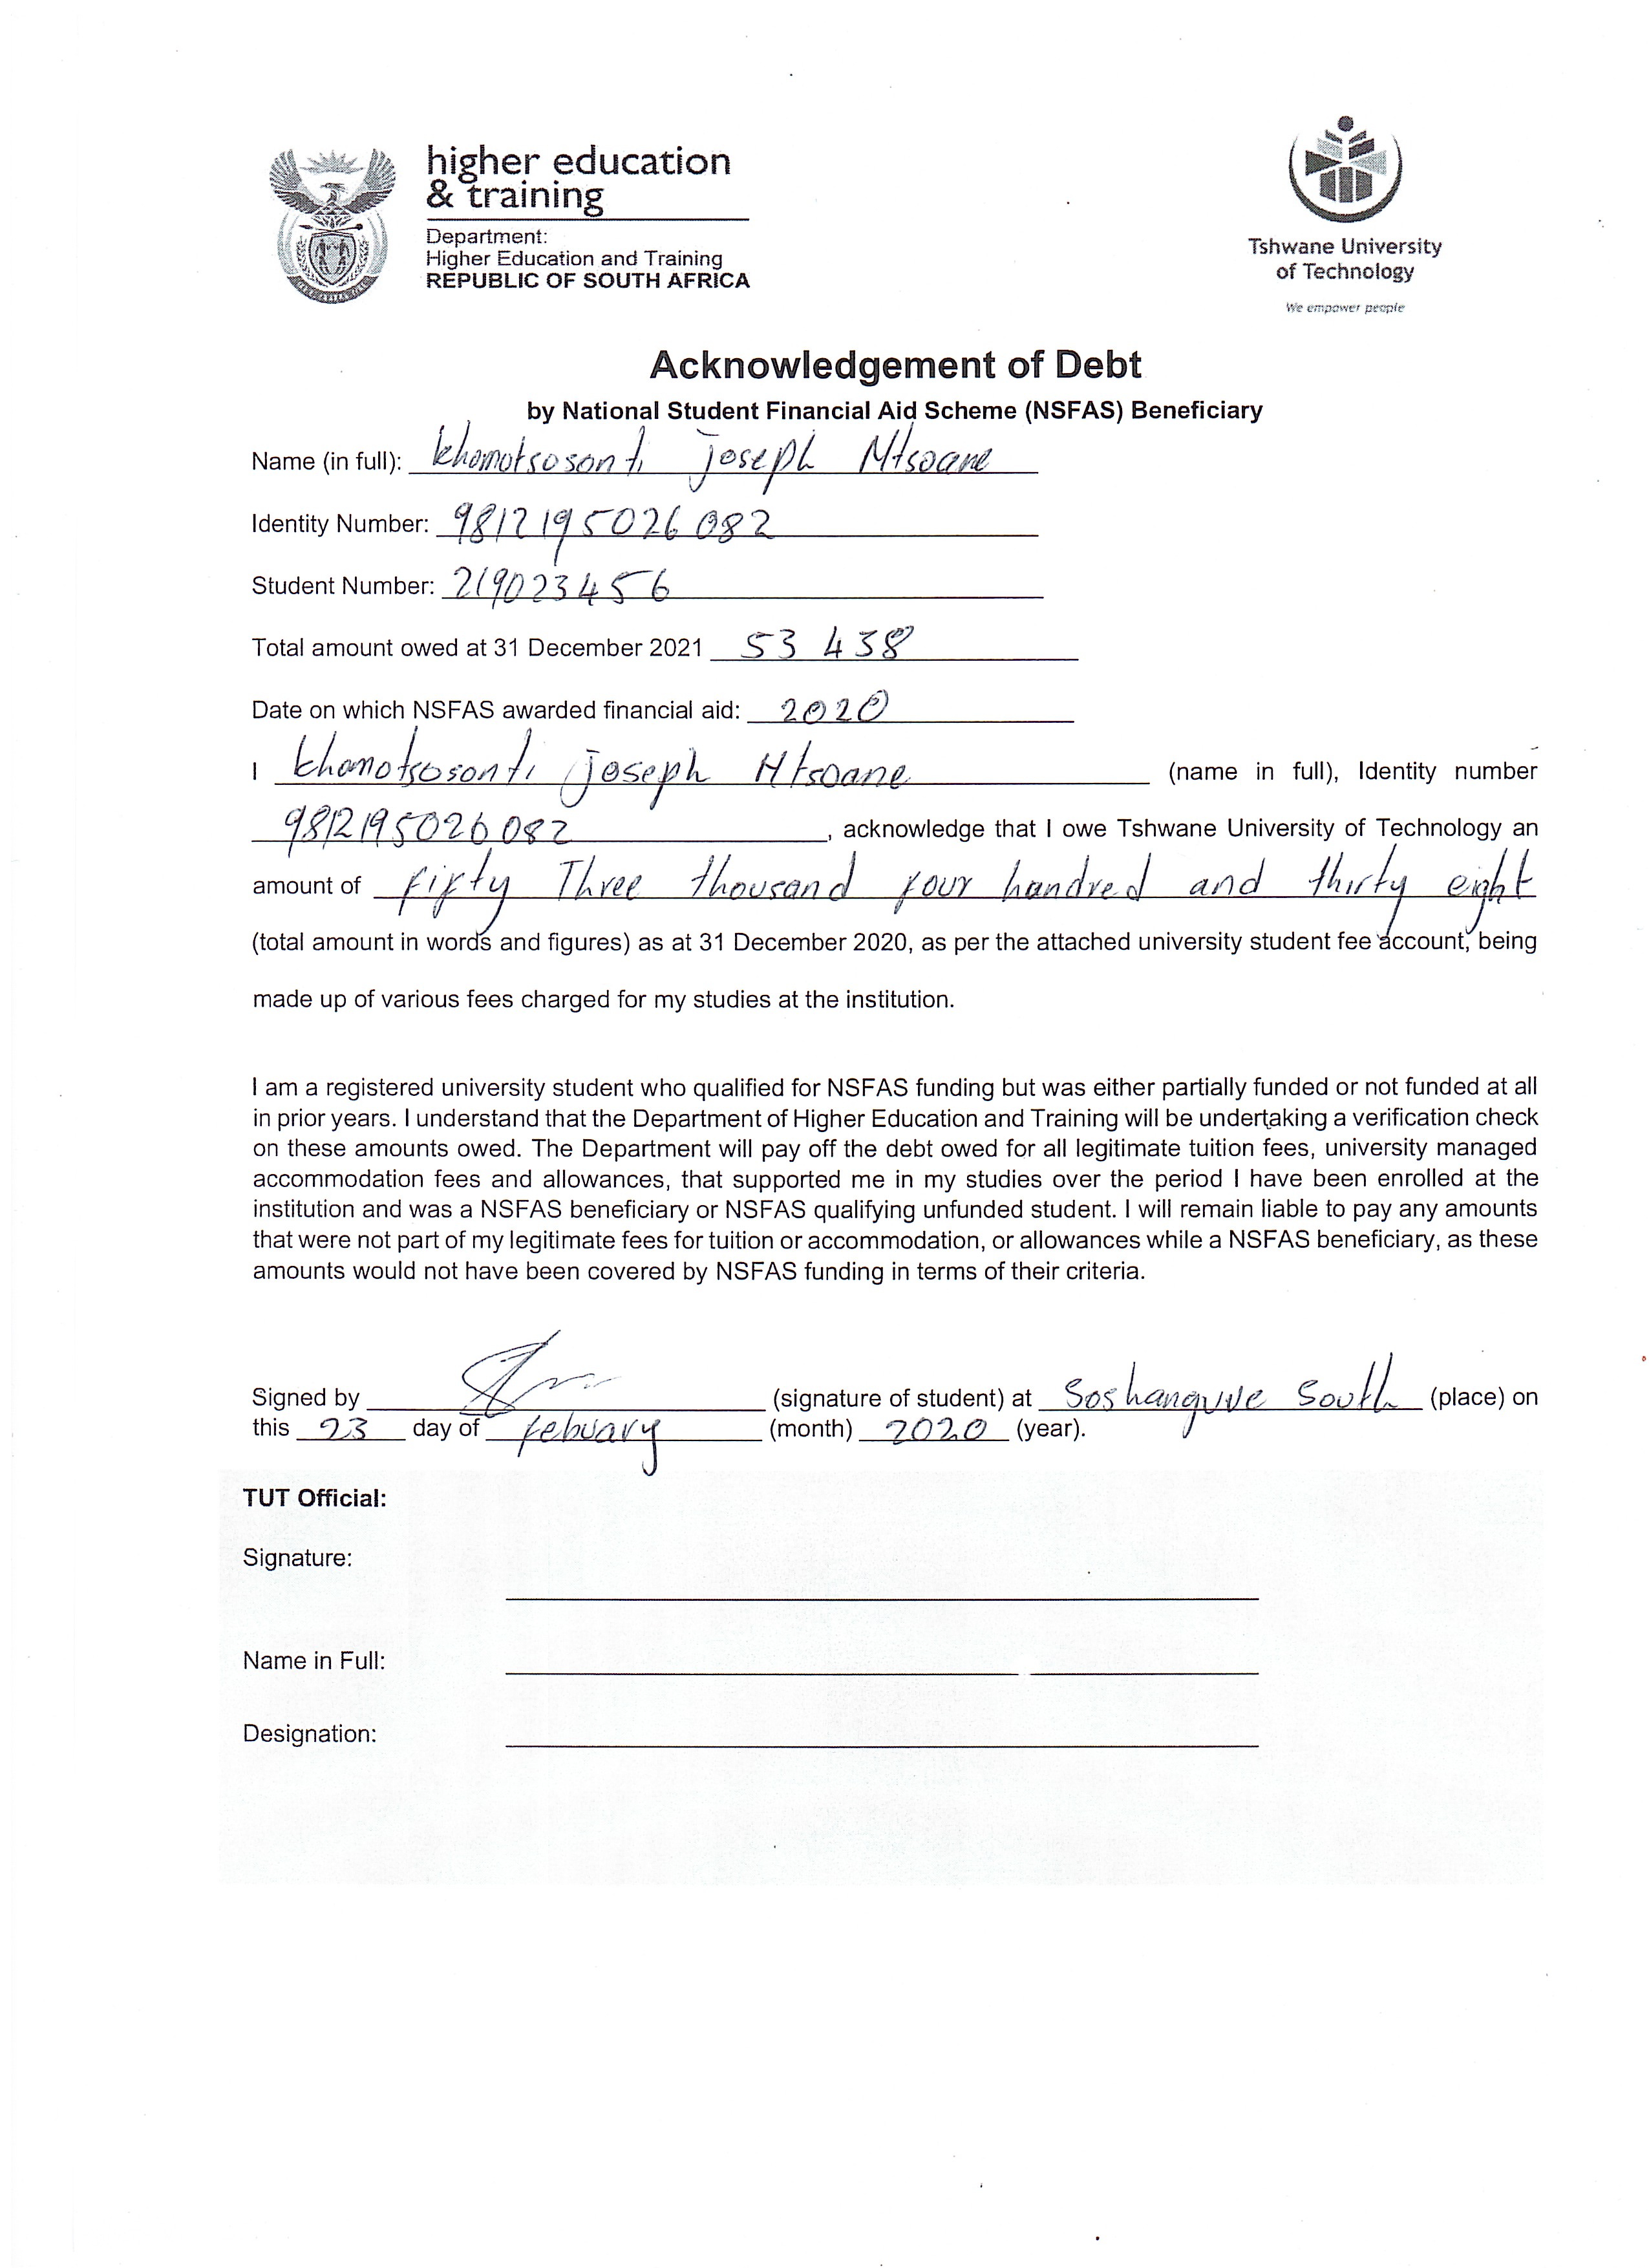 higher education
& training
Department:
Higher Education and Training
REPUBLIC OF SOUTH AFRICA
Tshwane University
of Technology
We empower people
Acknowledgement of Debt
by National Student Financial Aid Scheme (NSFAS) Beneficiary
Name (in full): khomotsosonti joseph Mtsoane
Identity Number: 9812195026082
Student Number: 219023456
Total amount owed at 31 December 2021 53 438
Date on which NSFAS awarded financial aid: 2020
I khomotsosonti joseph Mtsoane (name in full), Identity number
9812195026082, acknowledge that I owe Tshwane University of Technology an
amount of fifty Three thousand four hundred and thirty eight
(total amount in words and figures) as at 31 December 2020, as per the attached university student fee account, being
made up of various fees charged for my studies at the institution.
I am a registered university student who qualified for NSFAS funding but was either partially funded or not funded at all
in prior years. I understand that the Department of Higher Education and Training will be undertaking a verification check
on these amounts owed. The Department will pay off the debt owed for all legitimate tuition fees, university managed
accommodation fees and allowances, that supported me in my studies over the period I have been enrolled at the
institution and was a NSFAS beneficiary or NSFAS qualifying unfunded student. I will remain liable to pay any amounts
that were not part of my legitimate fees for tuition or accommodation, or allowances while a NSFAS beneficiary, as these
amounts would not have been covered by NSFAS funding in terms of their criteria.
Signed by (signature of student) at Soshanguve South (place) on
this 23 day of febuary (month) 2020 (year).
TUT Official:
Signature:
Name in Full:
Designation: